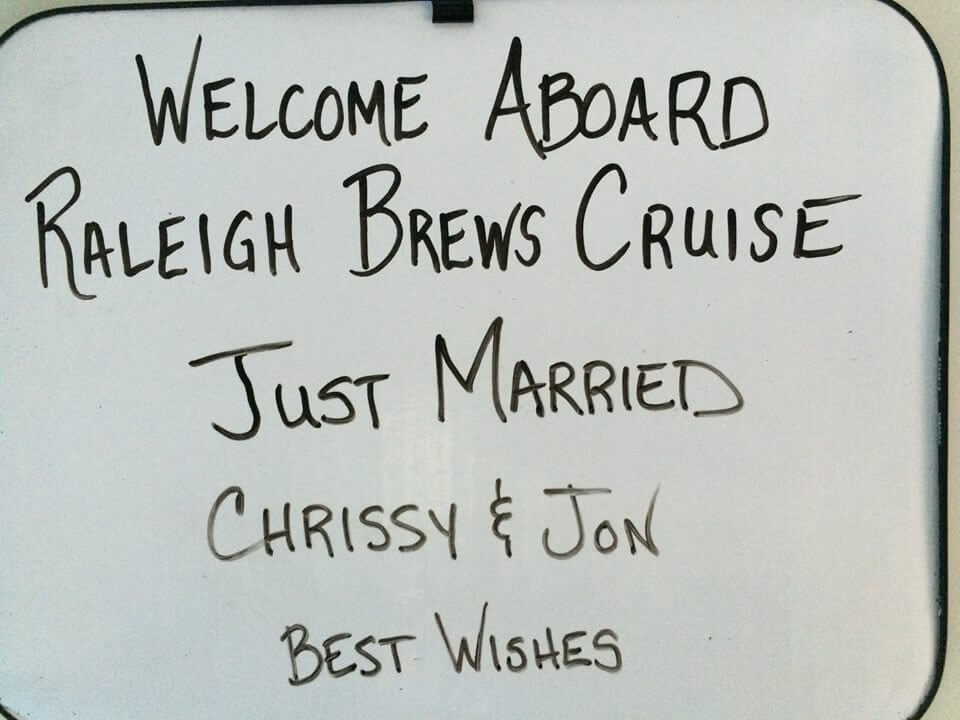 WELCOME ABOARD
RALEIGH BREWS CRUISE
JUST MARRIED
CHRISSY & JON
BEST WISHES